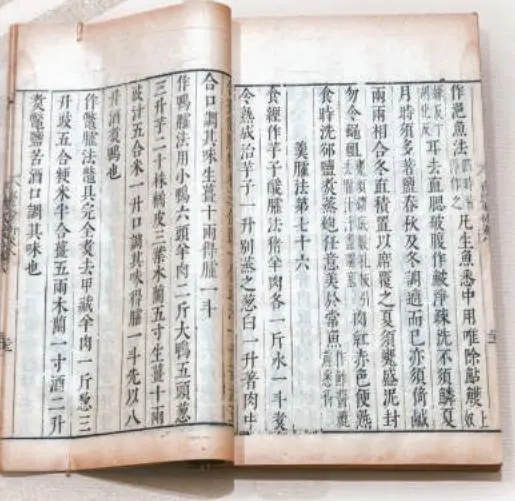 作浥魚法四時皆得作之凡生魚悉中用唯除鮎鱯上奴
嫌反下胡化反耳去直腮破腹作鮍淨疎洗不須鱗夏
月特須多著鹽春秋及冬調適而已亦須倚鹹
兩兩相合冬直積置以席覆之夏須甕盛泥封
勿令蠅蛆甕須鑽底數孔拔引去腥汁汁盡還塞肉紅赤色便熟
食時洗却鹽煑蒸炮任意美於常魚作鮓醬爊煎悉得
羹臛法第七十六
食經作芋子酸臛法猪羊肉各一斤水一斗煑
令熟成治芋子一升別蒸之葱白一升著肉中
合口調其味生薑十兩得臛一斗
作鴨臛法用小鴨六頭羊肉二斤大鴨五頭葱
三升芋二十株橘皮三葉木蘭五寸生薑十兩
豉汁五合米一升口調其味得臛一斗先以八
升酒煑鴨也
作鼈臛法鼈具完全煑去甲藏羊肉一斤葱三
升豉五合粳米半合薑五兩木蘭一寸酒二升
煑鼈鹽苦酒口調其味也